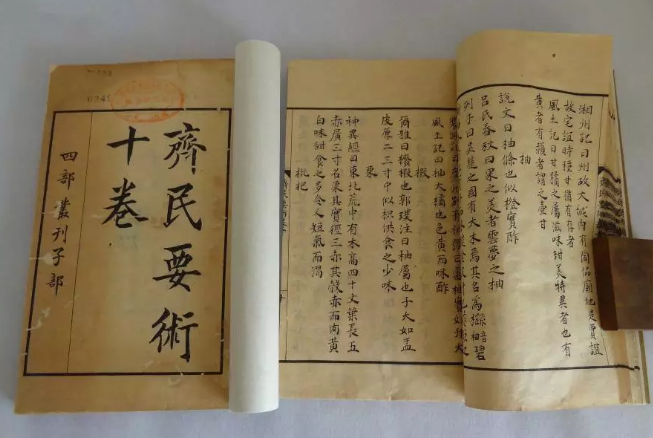 齊民要術
十卷
四部叢刊子部
湘州記曰州故大城内有陶侃廟地是賈誼
故宅誼時種甘猶有存者
風土記曰甘橘之屬滋味甜美特異者也有
黄者有赬者謂之壺甘
柚
說文曰柚條也似橙實酢
吕氏春秋曰果之美者雲夢之柚
列子曰吳越之國有大木焉其名為櫾碧
風土記曰柚大橘也色黄而味酢
椵
爾雅曰櫠椵也郭璞注曰柚屬也子大如盂
皮厚二三寸中似枳供食之少味
栗
神異經曰東北荒中有木高四十丈葉長五
赤廣三寸名栗其實徑三赤其殻赤而肉黄
白味甜食之多令人短氣而渴
枇杷